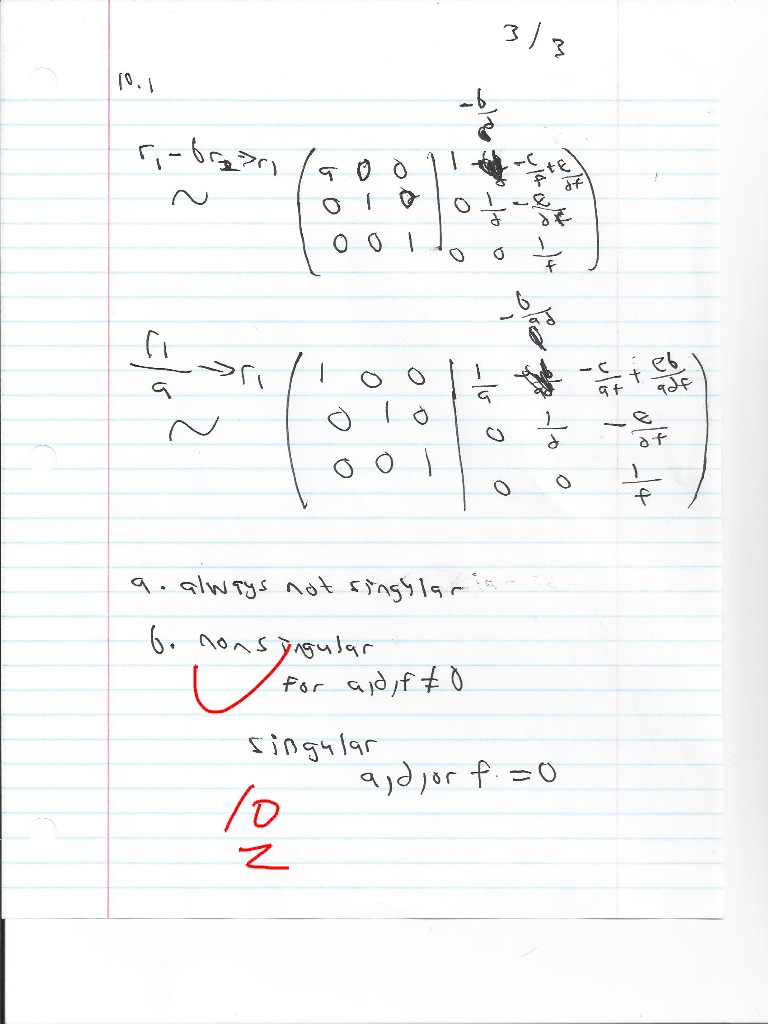 3/3
10.1
-b/d
r₁ - br₂ → r₁ ( a 0 0 | 1 -c/f + e/df )
~ ( 0 1 0 | 0 1/d -e/df )
( 0 0 1 | 0 0 1/f )
-b/ad
r₁/a → r₁ ( 1 0 0 | 1/a -c/af + eb/adf )
~ ( 0 1 0 | 0 1/d -e/df )
( 0 0 1 | 0 0 1/f )
a. always not singular
b. nonsingular
for a,d,f ≠ 0
singular
a,d,or f = 0
10
2